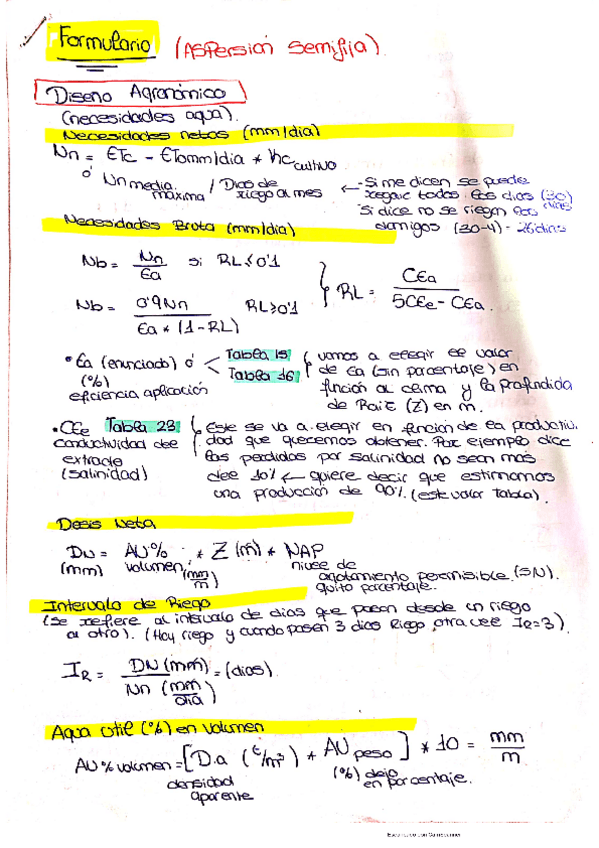 Formulario (Aspersión semifija)
Diseño Agronómico
(necesidades agua).
Necesidades netas (mm/dia)
Nn = ETc - ETo mm/dia * Kc cultivo
ó Nn media maxima / Dias de riego al mes ← Si me dicen se puede regar todos los dias (30) dias
Si dice no se riegan los domigos (30-4) - 26 dias
Necesidades Bruta (mm/dia)
Nb = Nn / Ea si RL ≤ 0'1
RL = CEa / 5CEe - CEa.
Nb = 0'9Nn / Ea * (1-RL) RL ≥ 0'1
• Ea (enunciado) ó < Tabla 15
Tabla 16
(%)
eficiencia aplicación
vamos a elegir el valor
de Ea (sin porcentaje) en
función al clima y la profundida
de Raiz (Z) en m.
• CEe Tabla 23
conductividad del
extracto
(salinidad)
Este se va a elegir en función de la productivi
dad que queremos obtener. Por ejemplo dice
las perdidas por salinidad no sean más
del 10% ← quiere decir que estimamos
una producción de 90%. (este valor Tabla).
Dosis Neta
Dn = AU% * Z (m) * NAP
(mm) volumen (mm/m) nivel de
agotamiento permisible. (SN).
quito porcentaje.
Intervalo de Riego
(se refiere al intervalo de dias que pasan desde un riego
al otro). (Hay riego y cuando pasen 3 dias Riego otra vez IR=3).
IR = DN (mm) / Nn (mm/dia) = (dias).
Agua util (%) en volumen
AU % volumen = [D.a (t/m³) * AU peso] * 10 = mm/m
densidad
aparente
(%) dejo
en porcentaje.